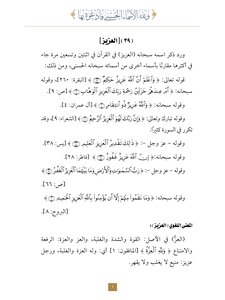 ولله الأسماء الحسنى فادعوه بها
(٢٩) [العزيز]
ورد ذكر اسمه سبحانه (العزيز) في القرآن في اثنتين وتسعين مرة جاء
في أكثرها مقترنًا بأسماء أخرى من أسمائه سبحانه الحسنى، ومن ذلك:
قوله تعالى: ﴿وَاعْلَمْ أَنَّ اللَّهَ عَزِيزٌ حَكِيمٌ﴾ [البقرة: ٢٦٠]، وقوله
سبحانه: ﴿أَمْ عِندَهُمْ خَزَائِنُ رَحْمَةِ رَبِّكَ الْعَزِيزِ الْوَهَّابِ﴾ [ص: ٩].
وقوله سبحانه: ﴿وَاللَّهُ عَزِيزٌ ذُو انتِقَامٍ﴾ [آل عمران: ٤].
وقوله تبارك وتعالى: ﴿وَإِنَّ رَبَّكَ لَهُوَ الْعَزِيزُ الرَّحِيمُ﴾ [الشعراء: ٩]، وقد
تكرر في السورة كثيرًا.
وقوله - عز وجل -: ﴿ذَٰلِكَ تَقْدِيرُ الْعَزِيزِ الْعَلِيمِ﴾ [يس: ٣٨].
وقوله سبحانه: ﴿إِنَّ اللَّهَ عَزِيزٌ غَفُورٌ﴾ [فاطر: ٢٨].
وقوله - عز وجل -: ﴿رَبُّ السَّمَاوَاتِ وَالْأَرْضِ وَمَا بَيْنَهُمَا الْعَزِيزُ الْغَفَّارُ﴾
[ص: ٦٦].
وقوله سبحانه: ﴿وَمَا نَقَمُوا مِنْهُمْ إِلَّا أَن يُؤْمِنُوا بِاللَّهِ الْعَزِيزِ الْحَمِيدِ﴾
[البروج: ٨].
المعنى اللغوي (العزيز):
(العز) في الأصل: القوة والشدة والغلبة، والعز والعزة: الرفعة
والامتناع ﴿وَلِلَّهِ الْعِزَّةُ﴾ [المنافقون: ٨] أي: وله العزة والغلبة، ورجل
عزيز: منيع لا يغلب ولا يقهر.